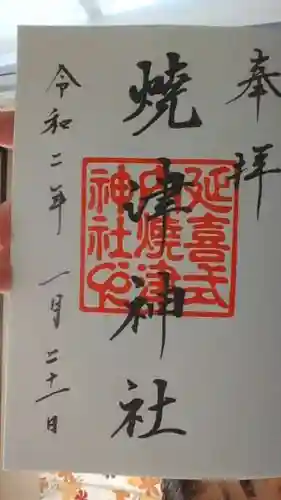 奉拝
燒津神社
延喜式
内燒津
神社印
令和二年一月二十一日